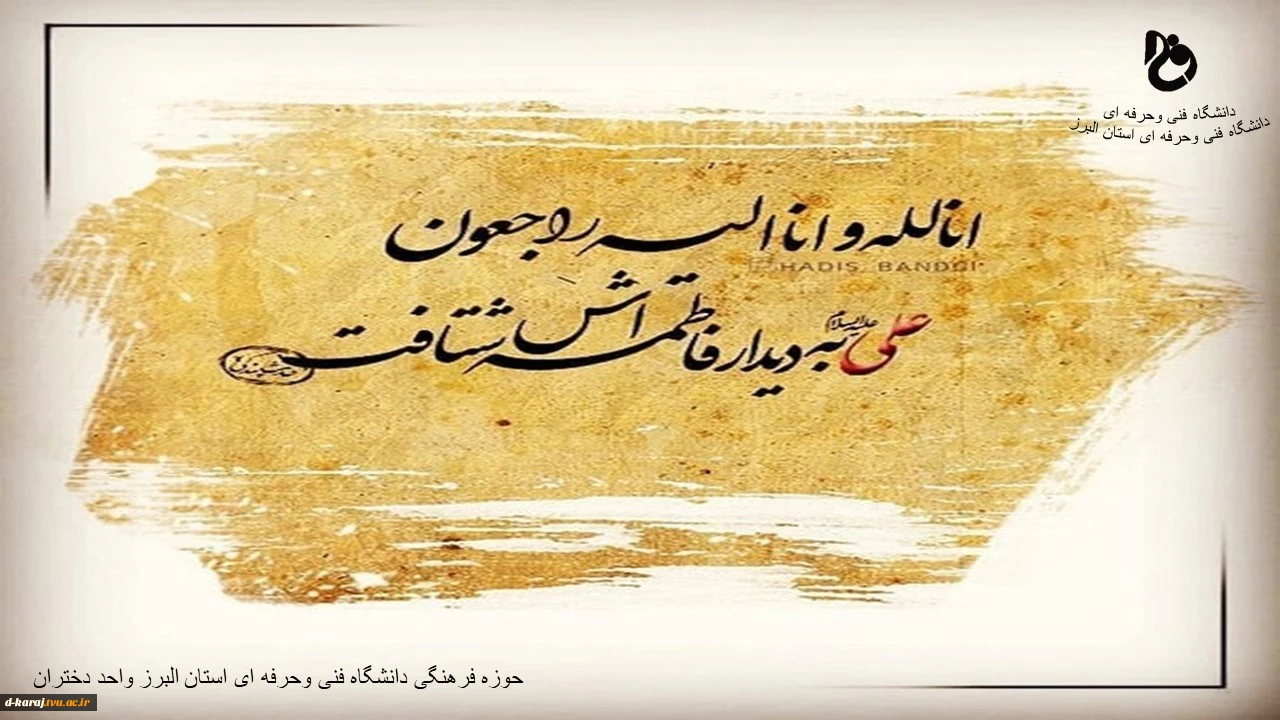 دانشگاه فنی وحرفه ای
دانشگاه فنی وحرفه ای استان البرز
انالله و انا الیه راجعون
HADIS BANDGI
علی علیه‌السلام به دیدار فاطمه اَش شتافت
حوزه فرهنگی دانشگاه فنی وحرفه ای استان البرز واحد دختران
d-karaj.tvu.ac.ir